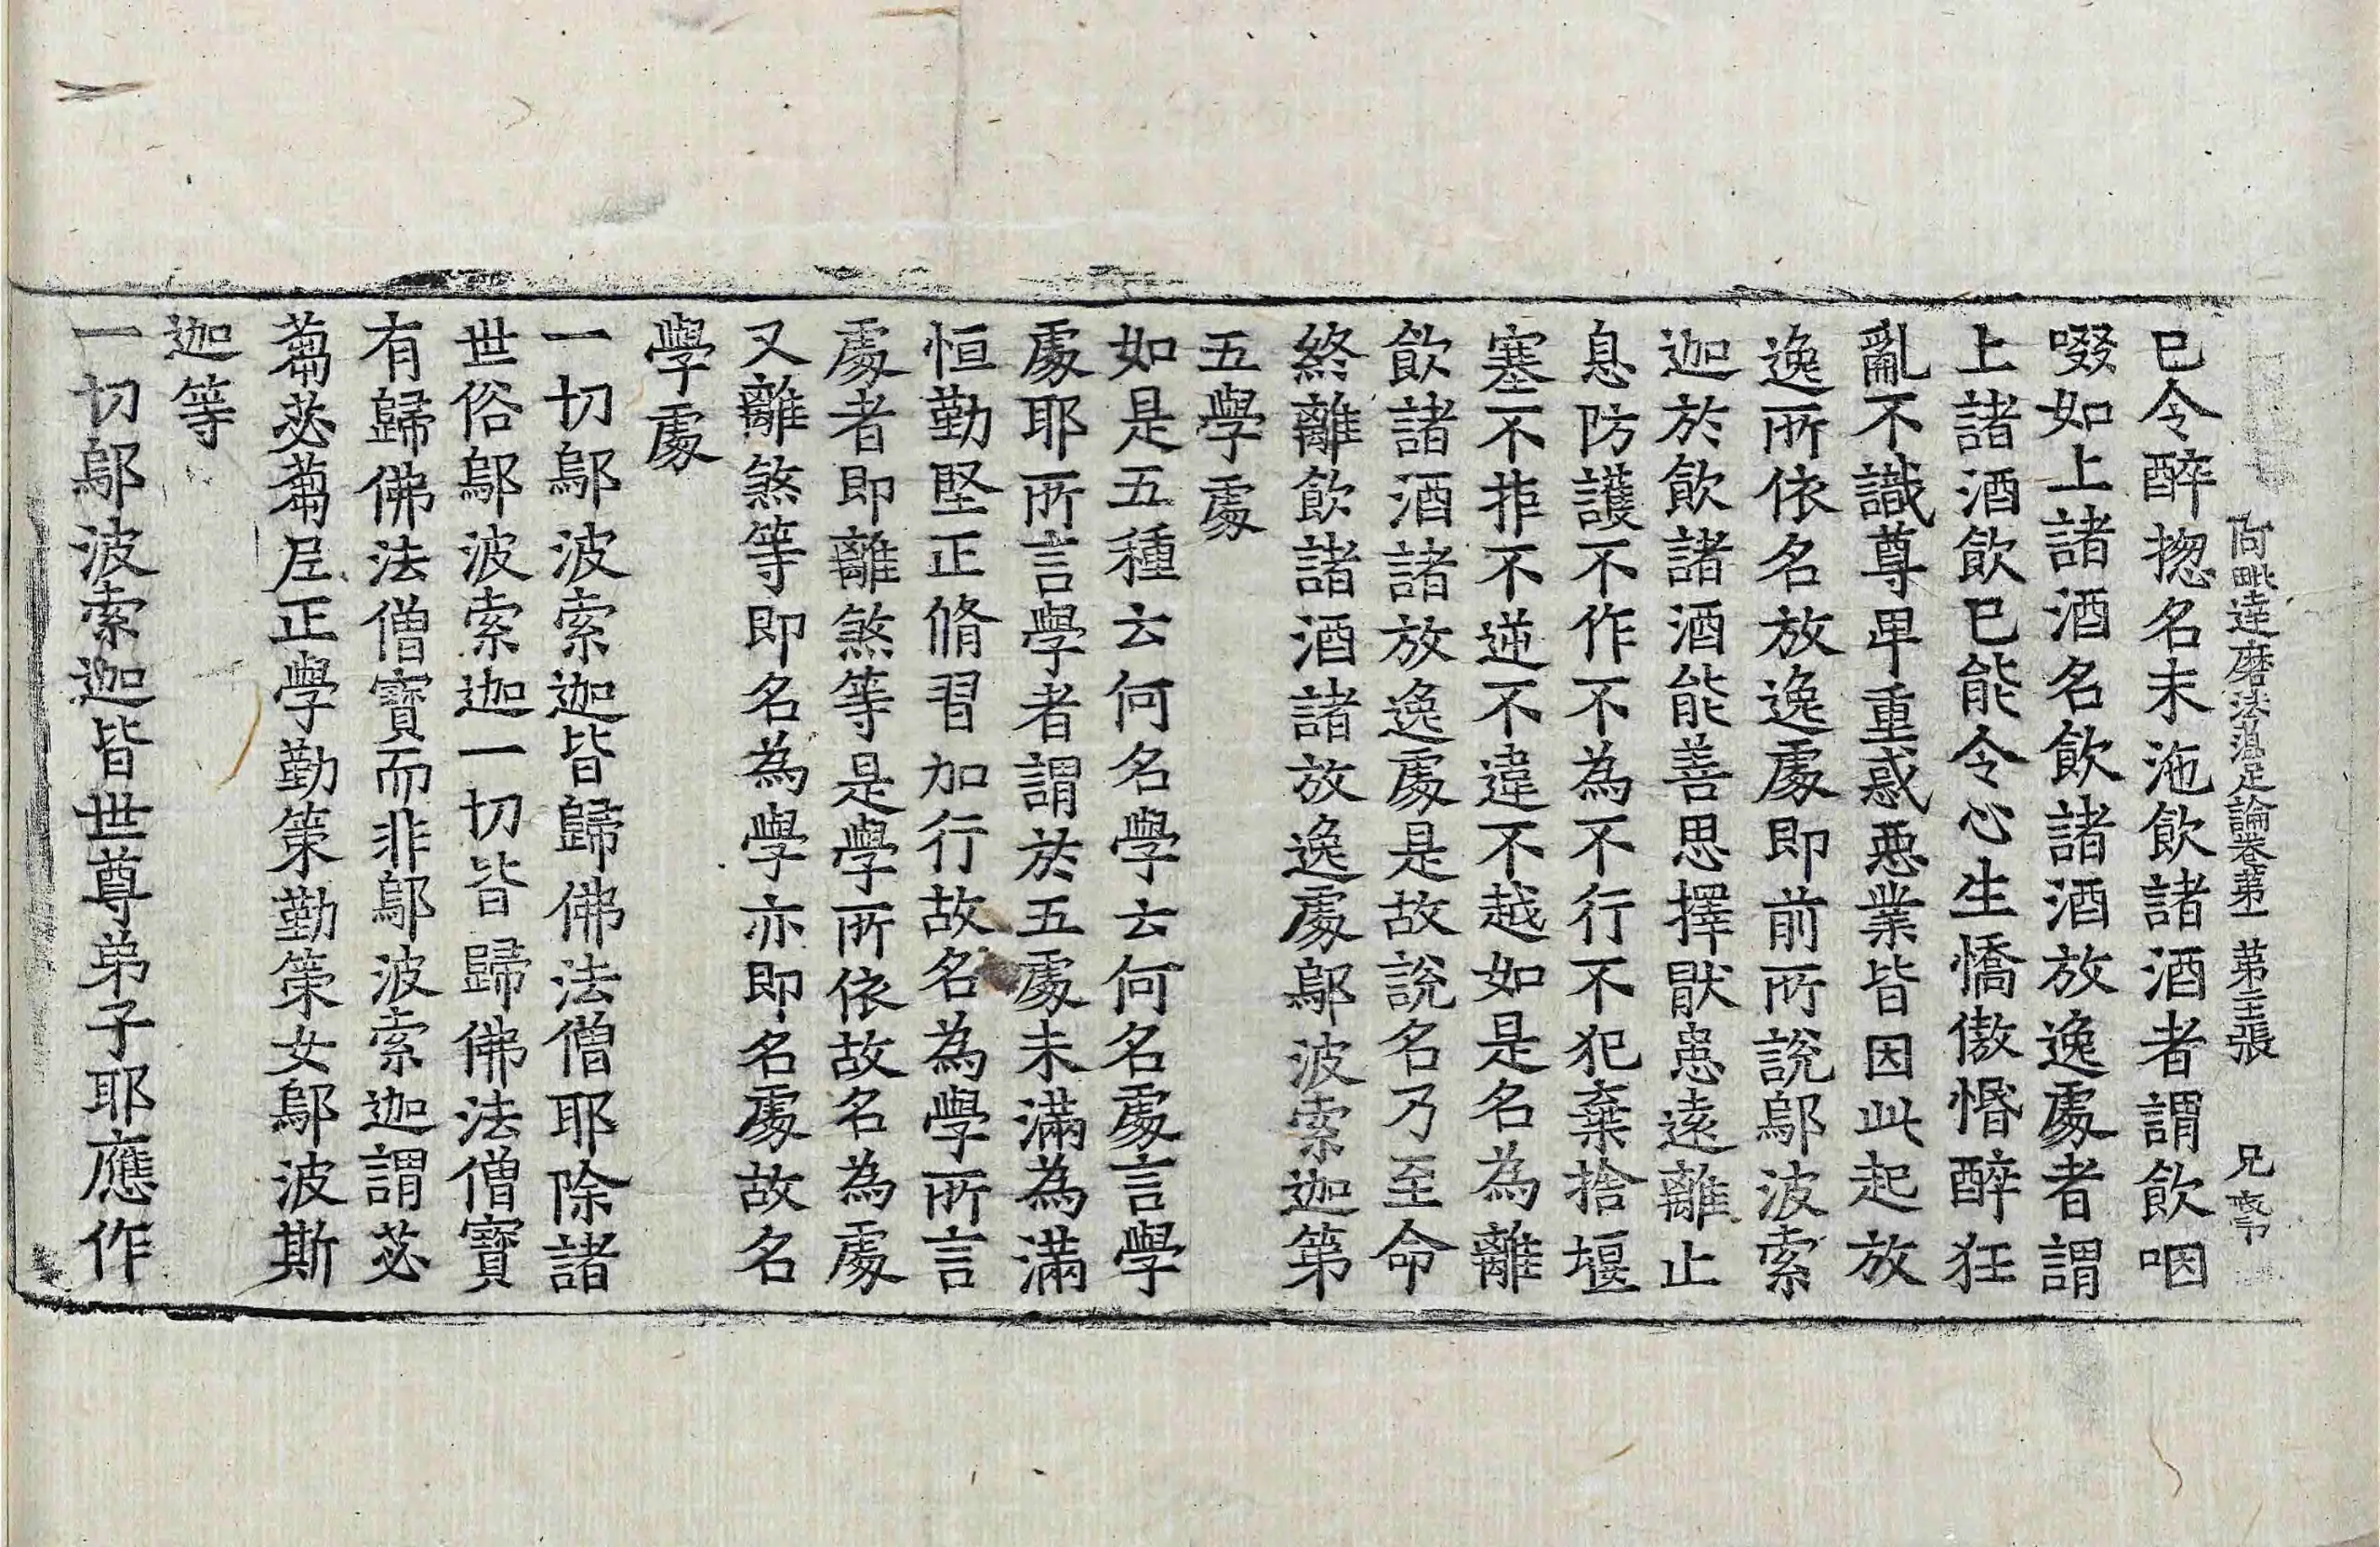 阿毗達磨法蘊足論卷第一 第主張 兄
已令醉揔名末沲飲諸酒者謂飲咽
啜如上諸酒名飲諸酒放逸處者謂
上諸酒飲已能令心生憍傲惛醉狂
亂不識尊卑重惑惡業皆因此起放
逸所依名放逸處即前所說鄔波索
迦於飲諸酒能善思擇猒患遠離止
息防護不作不為不行不犯棄捨堰
塞不拒不逆不違不越如是名為離
飲諸酒諸放逸處是故說名乃至命
終離飲諸酒諸放逸處鄔波索迦第
五學處
如是五種云何名學云何名處言學
處耶所言學者謂於五處未滿為滿
恒勤堅正脩習加行故名為學所言
處者即離煞等是學所依故名為處
又離煞等即名為學亦即名處故名
學處
一切鄔波索迦皆歸佛法僧耶除諸
世俗鄔波索迦一切皆歸佛法僧寶
有歸佛法僧寶而非鄔波索迦謂苾
蒭苾蒭𡰱正學勤策勤策女鄔波斯
迦等
一切鄔波索迦皆世尊弟子耶應作